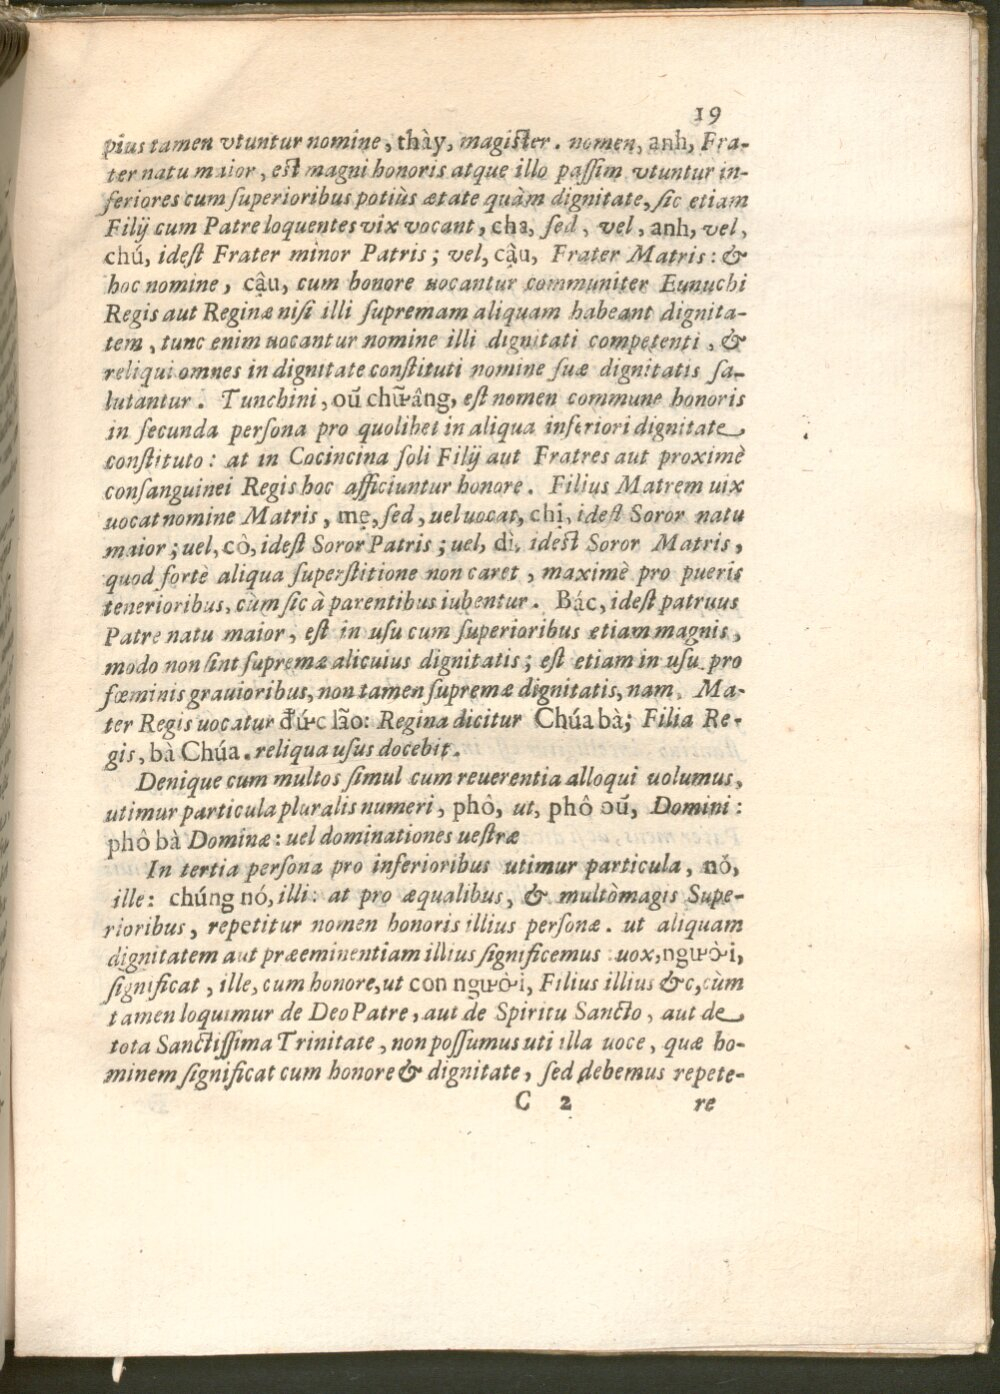 19
pius tamen vtuntur nomine, thày, magiſter. nomen, anh, Fra-
ter natu maior, eſt magni honoris atque illo paſſim vtuntur in-
feriores cum ſuperioribus potiùs ætate quàm dignitate, ſic etiam
Filij cum Patre loquentes vix vocant, cha, ſed, vel, anh, vel,
chú, ideſt Frater minor Patris; vel, cậu, Frater Matris: &
hoc nomine, cậu, cum honore uocantur communiter Eunuchi
Regis aut Reginæ niſi illi ſupremam aliquam habeant dignita-
tem, tunc enim uocantur nomine illi dignitati competenti, &
reliqui omnes in dignitate conſtituti nomine ſuæ dignitatis ſa-
lutantur. Tunchini, oũ chũâng, eſt nomen commune honoris
in ſecunda perſona pro quolibet in aliqua inferiori dignitate
conſtituto: at in Cocincina ſoli Filij aut Fratres aut proximè
conſanguinei Regis hoc afficiuntur honore. Filius Matrem uix
uocat nomine Matris, mẹ, ſed, uel uocat, chị, ideſt Soror natu
maior; uel, cò, ideſt Soror Patris; uel, dì, ideſt Soror Matris,
quod fortè aliqua ſuperſtitione non caret, maximè pro pueris
tenerioribus, cùm ſic à parentibus iubentur. Bác, ideſt patruus
Patre natu maior, eſt in uſu cum ſuperioribus etiam magnis,
modo non ſint ſupremæ alicuius dignitatis; eſt etiam in uſu pro
fœminis grauioribus, non tamen ſupremæ dignitatis, nam, Ma-
ter Regis uocatur đức lão: Regina dicitur Chúa bà; Filia Re-
gis, bà Chúa. reliqua uſus docebit.
Denique cum multos ſimul cum reuerentia alloqui uolumus,
utimur particula pluralis numeri, phô, ut, phô oũ, Domini:
phô bà Dominæ: uel dominationes ueſtræ
In tertia perſona pro inferioribus utimur particula, nó,
ille: chúng nó, illi: at pro æqualibus, & multò magis Supe-
rioribus, repetitur nomen honoris illius perſonæ. ut aliquam
dignitatem aut præeminentiam illius ſignificemus uox, ngườì,
ſignificat, ille, cum honore, ut con người, Filius illius &c, cùm
tamen loquimur de Deo Patre, aut de Spiritu Sancto, aut de
tota Sanctiſſima Trinitate, non poſſumus uti illa uoce, quæ ho-
minem ſignificat cum honore & dignitate, ſed debemus repete-
C 2 re